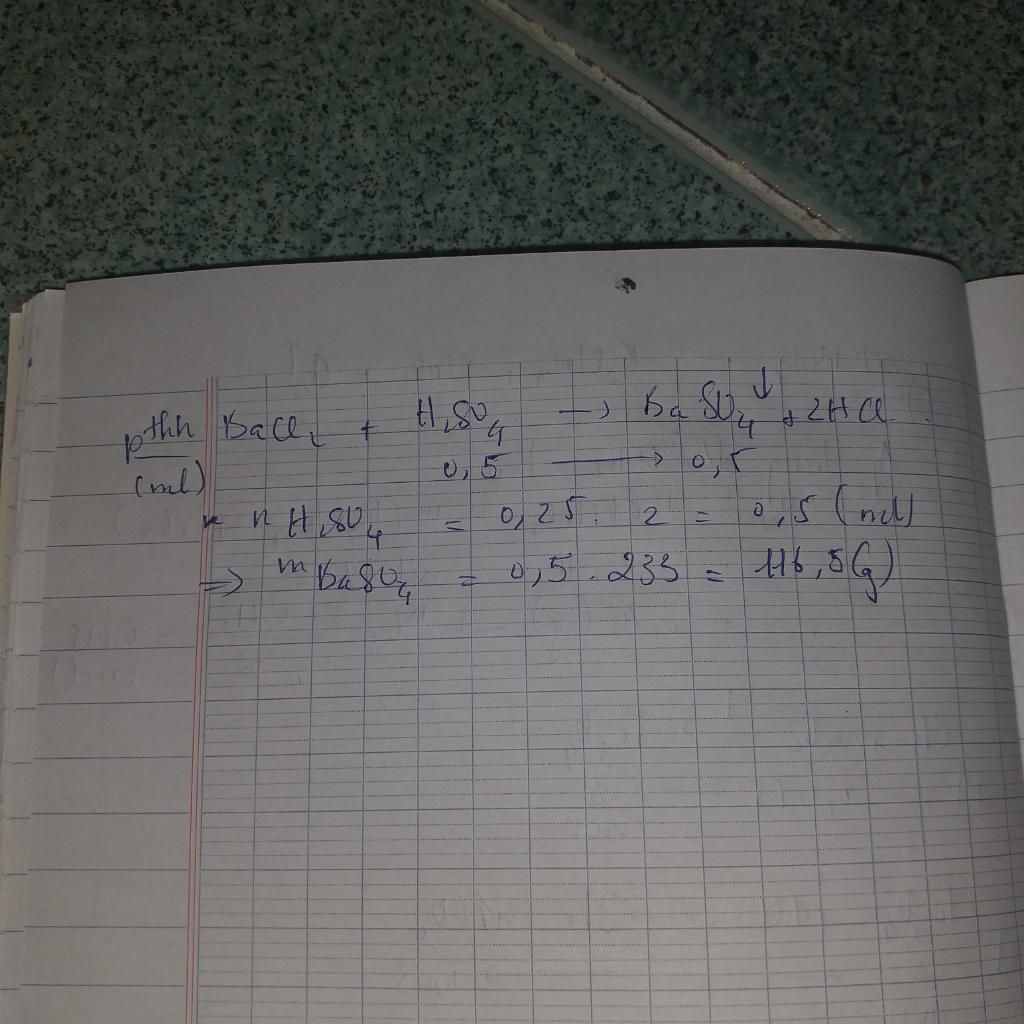 pthh BaCl₂ + H₂SO₄ → BaSO₄↓ + 2HCl.
(mol) 0,5 → 0,5
* n H₂SO₄ = 0,25. 2 = 0,5 (mol)
=> m BaSO₄ = 0,5 . 233 = 116,5(g)